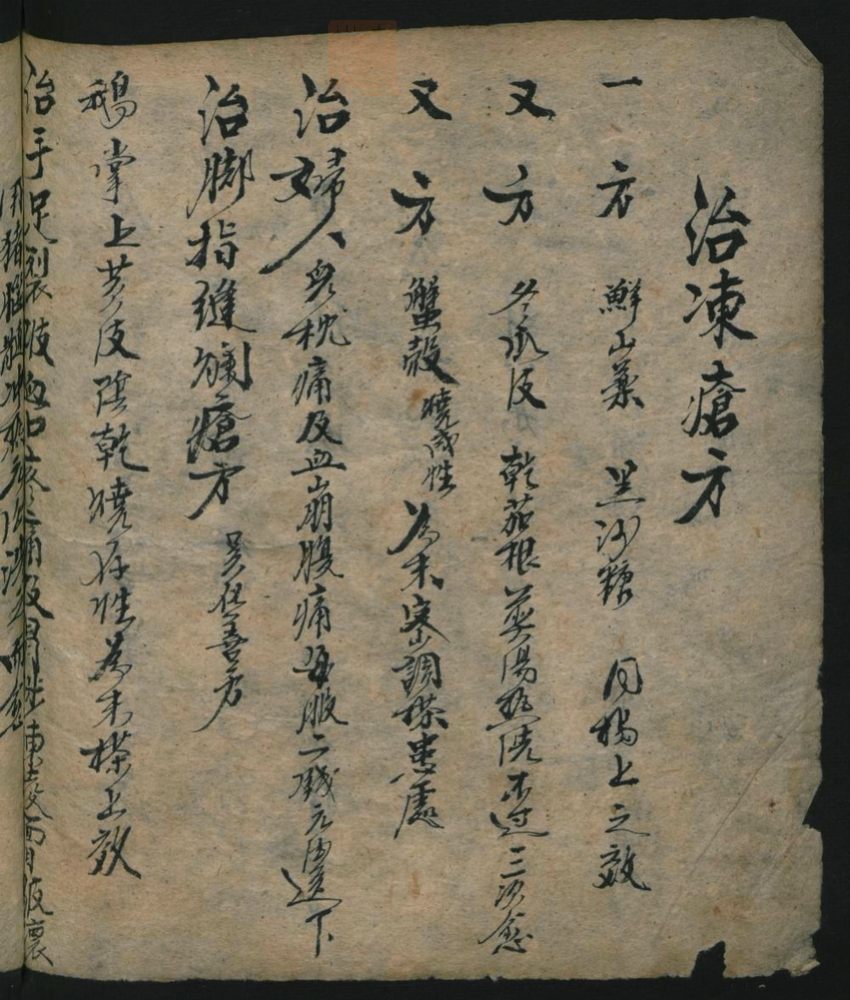 治凍瘡方
一方 鮮山藥 黑沙糖 同搗上之效
又方 冬瓜皮 乾茄根 煎湯熱洗不过三次愈
又方 蟹殼 燒存性 為末蜜調搽患處
治婦人兒枕痛及血崩腹痛每服二錢元酒送下
治脚指縫爛瘡方 吳但善方
鵝掌上黄皮陰乾燒存性為末搽上效
治手足裂皴血口疼痛及